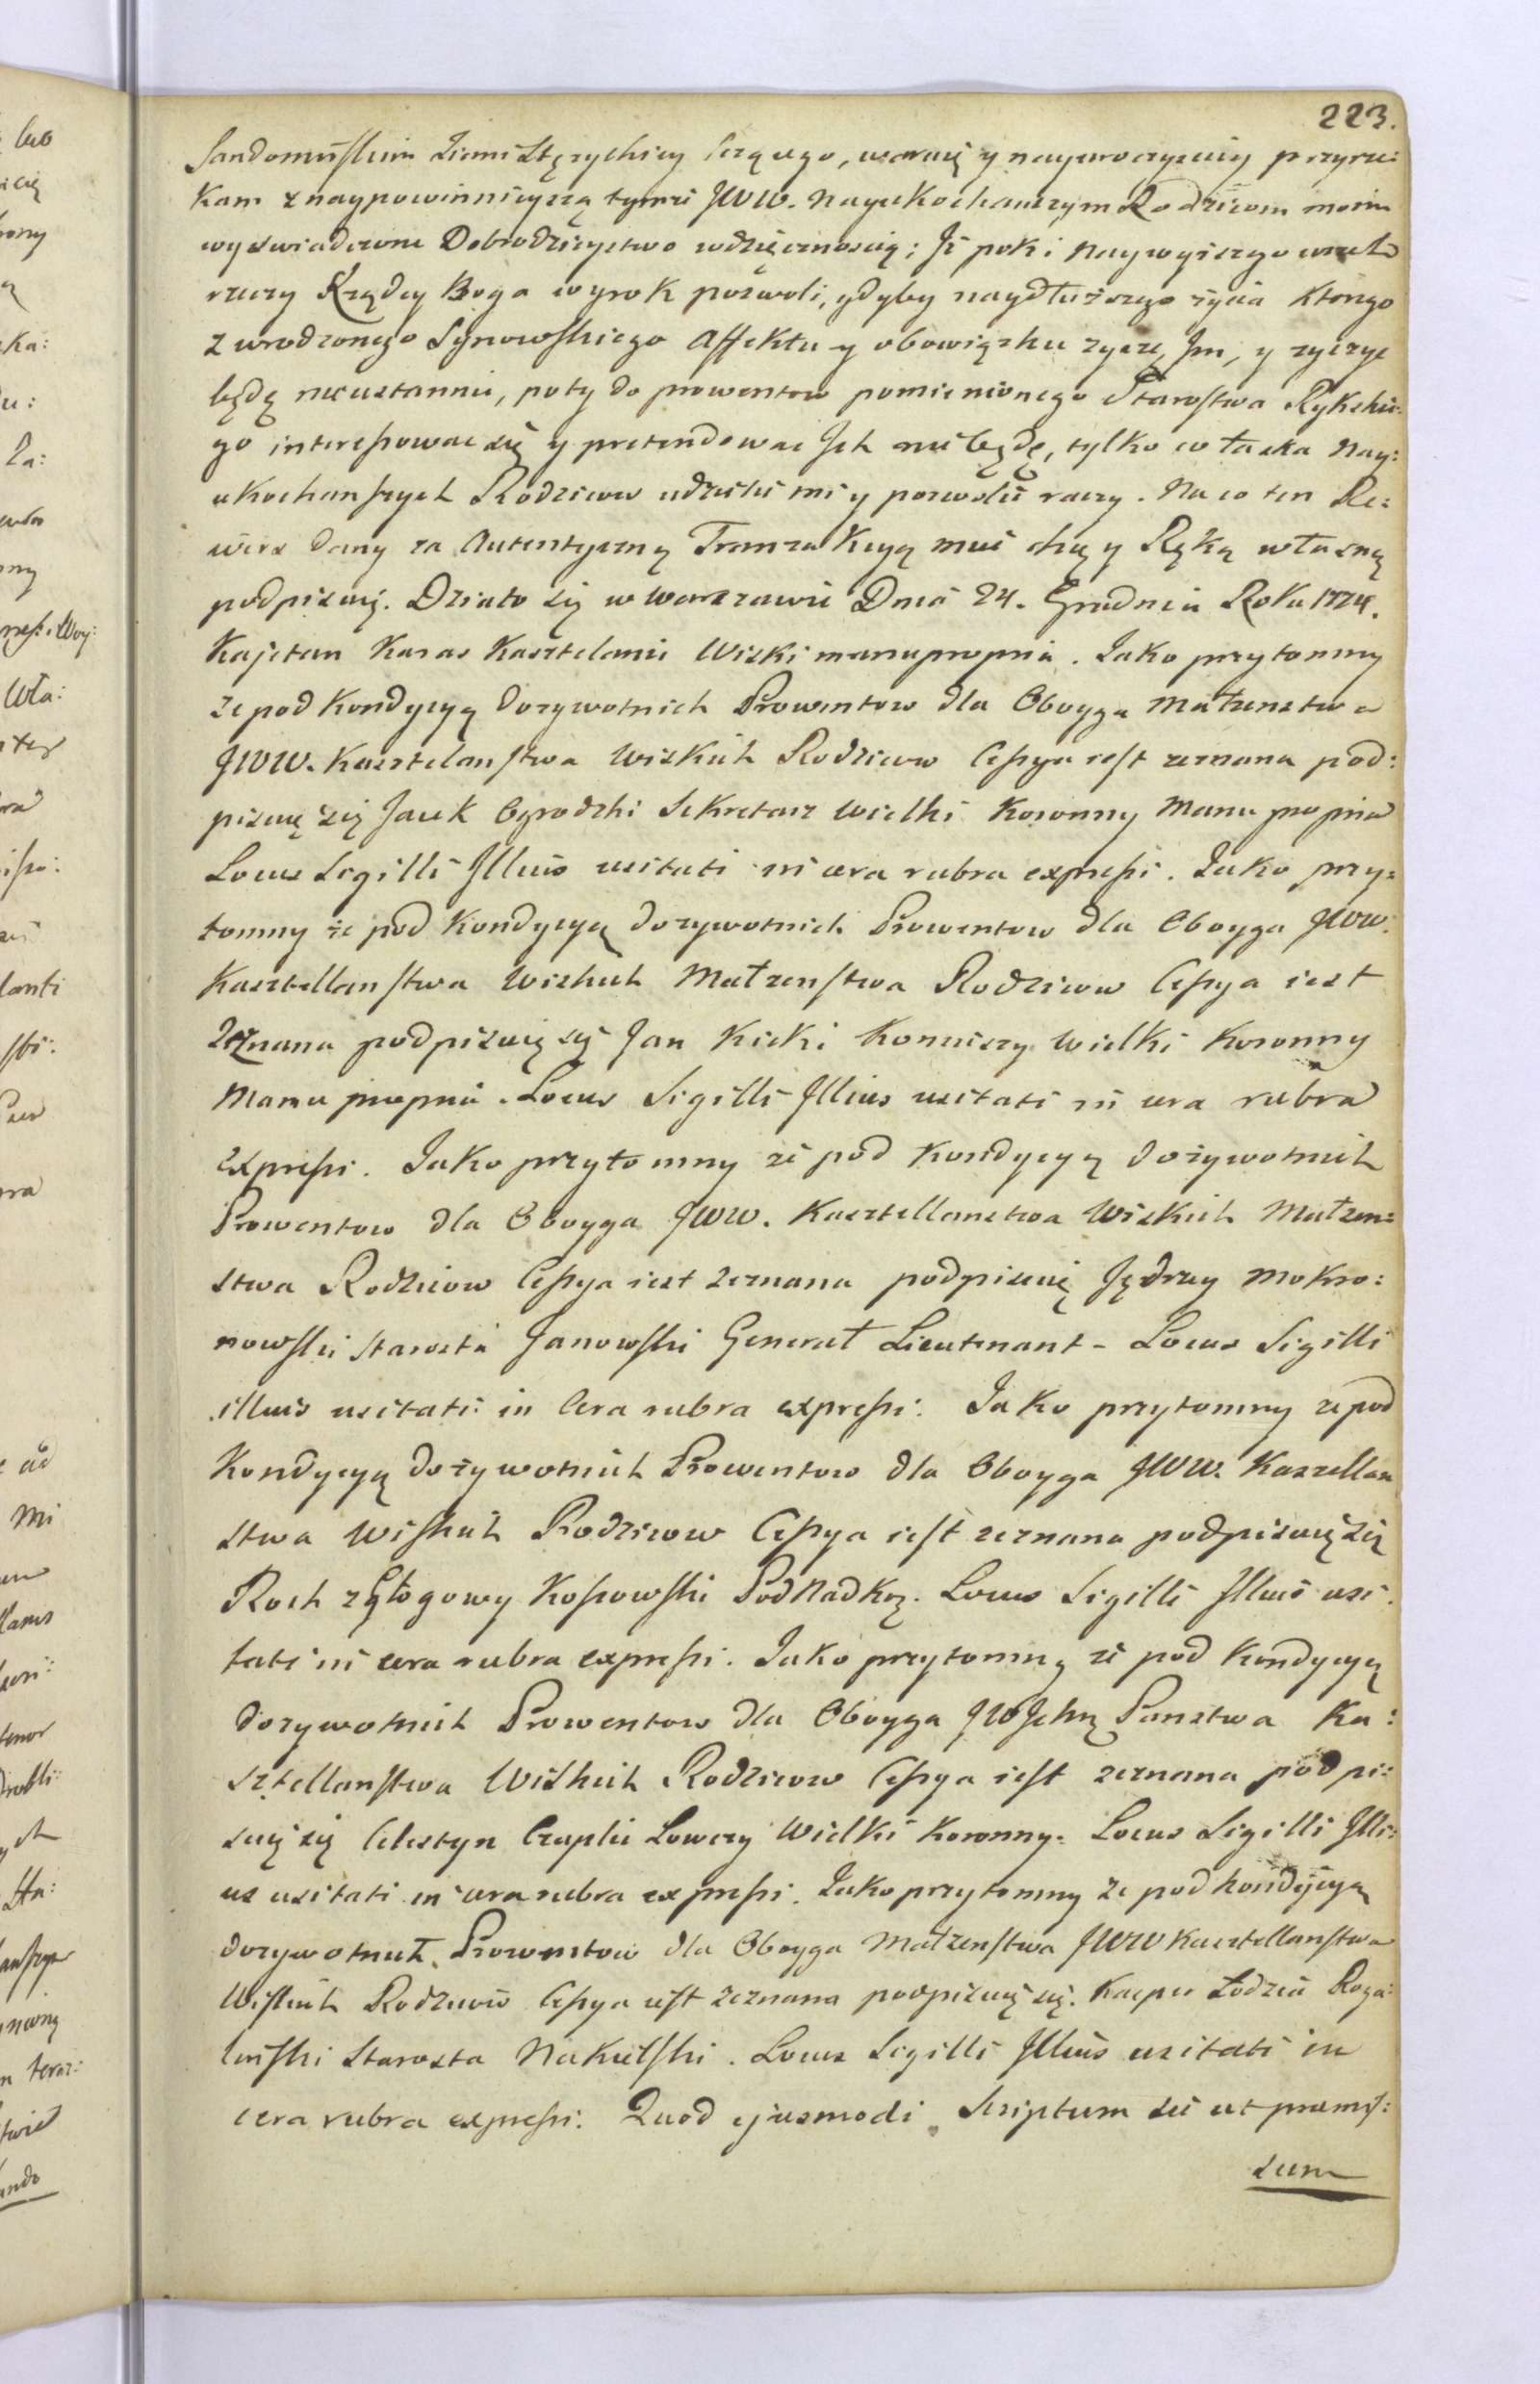 223.
Sandomirskim Ziemi Stężyckiey leżącego, waruię y nayuroczyściey przyrze:
kam z naypowinnieyszą tymże JWW. Nayukochańszym Rodzicom moim
wyświadczone Dobrodzieystwo wdzięcznością; Iż poki Naywyższego
rzeczy Rządcy Boga wyrok pozwoli, gdyby naydłuższego życia ktorego
z wrodzonego Synowskiego Affektu y obowiązku życzę Jm, y życzyć
będę nieustannie, poty do prowentow pomienionego Starostwa Ryckie:
go interessować się y pretendować Ich nie będę, tylko co łaska Nay:
ukochańszych Rodzicow udzielić mi y pozwolić raczy. Na co ten Re:
wers dany za Autentyczną Tranzakcyą mieć chcę y Ręką własną
podpisuię. Działo się w Warszawie Dnia 24. Grudnia Roku 1774.
Kajetan Karas Kasztelanic Wizki manu propria. Jako przytomny
że pod Kondycyą dożywotnich Prowentow dla Oboyga Małżenstwa
JWW. Kasztelanstwa Wizkich Rodzicow Cessya iest zeznana pod:
pisuię się Jacek Ogrodzki Sekretarz Wielki Koronny Manu propria
Locus Sigilli Illius usitati in cera rubra expressi. Jako przy:
tomny że pod Kondycyą dożywotnich Prowentow dla Oboyga JWW.
Kasztellanstwa Wizkich Małżenstwa Rodzicow Cessya iest
Zeznana podpisuię się Jan Kicki Koniuszy Wielki Koronny
Manu propria. Locus Sigilli Illius usitati in cera rubra
expressi. Jako przytomny że pod Kondycyą dożywotnich
Prowentow dla Oboyga JWW. Kasztellanstwa Wizkich Małżen:
stwa Rodzicow Cessya iest zeznana podpisuię Jędrzey Mokro:
nowski Starosta Janowski Generał Lieutenant – Locus Sigilli
illius usitati in Cera rubra expressi. Jako przytomny że pod
Kondycyą dożywotnich Prowentow dla Oboyga JWW. Kasztellan
stwa Wiskich Rodzicow Cessya iest zeznana podpisuię się
Roch z Głogowy Kossowski PodNadKę. Locus Sigilli Illius usi:
tati in cera rubra expressi. Jako przytomny że pod Kondycyą
dożywotnich Prowentow dla Oboyga JWIchm Panstwa Ka:
sztellanstwa Wizkich Rodzicow Cessya iest zeznana podpi:
suię się Celestyn Czaplic Łowczy Wielki Koronny. Locus Sigilli Illi:
us usitati in cera rubra expressi. Jako przytomny że pod kondycyą
dożywotnich Prowentow dla Oboyga Małżenstwa JWW Kasztellanstwa
Wiskich Rodzicow Cessya iest zeznana podpisuię się. Kasper Łodzia Roga:
linski Starosta Nakielski. Locus Sigilli Illius usitati in
cera rubra expressi. Quod ejusmodi Scriptum sic ut præmis:
sum